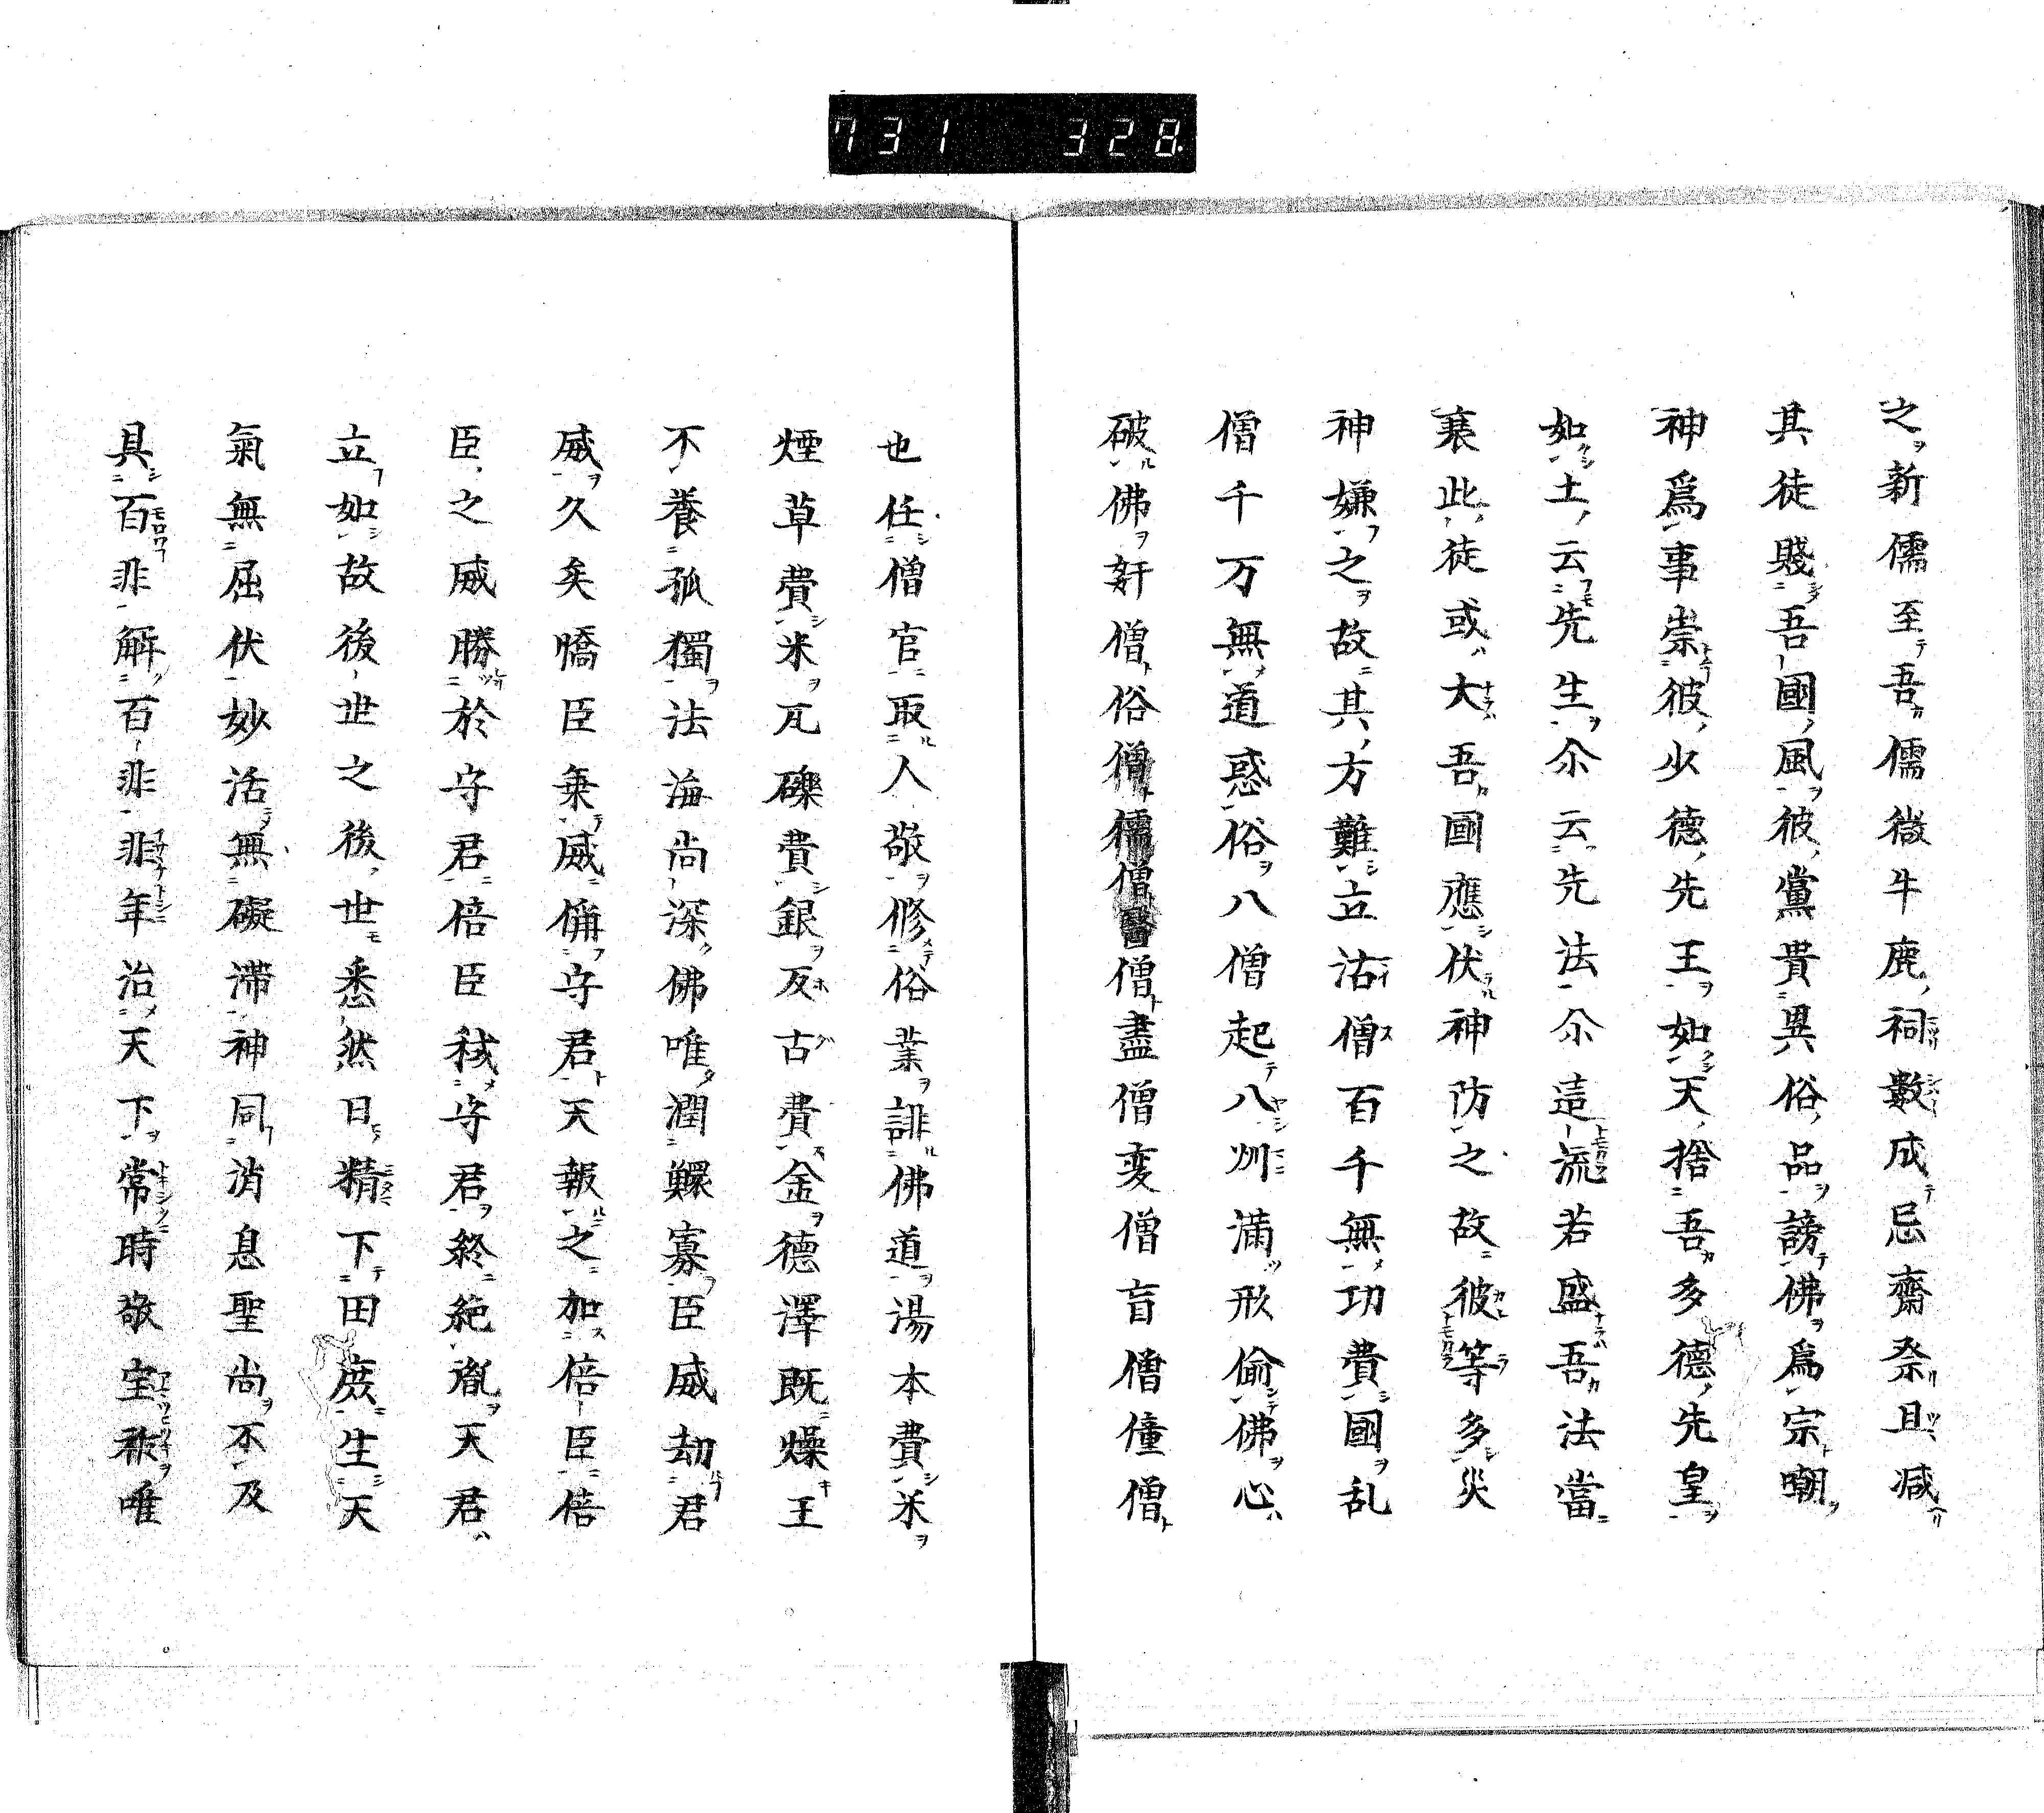 731 328
之新儒至吾儒微牛鹿祠數成忌齋祭且減
其徒賤吾國風彼黨貴異俗品謗佛爲宗嘲
神爲事崇彼少德先王如天捨吾多德先皇
如土云先生尒云先法尒這流若盛吾法當
衰此徒或大吾國應伏神防之故彼等多災
神嫌之故其方難立沽僧百千無功費國乱
僧千万無道惑俗八僧起八州滿形偷佛心
破佛奸僧俗僧儒僧醫僧盡僧変僧盲僧僮僧
也任僧官取人敬修俗業誹佛道湯本費米
煙草費米瓦礫費銀反古費金德澤既燥王
不養孤獨法海尚深佛唯潤鰥寡臣威劫君
威久矣憍臣乗威備守君天報之加倍臣倍
臣之威勝於守君倍臣穢守君終絶胤天君
立如故後世之後世悉然日精下田庶生天
氣無屈伏妙活無礙滯神同消息聖尚不及
具百非解百非非年治天下常時敬宝祚唯